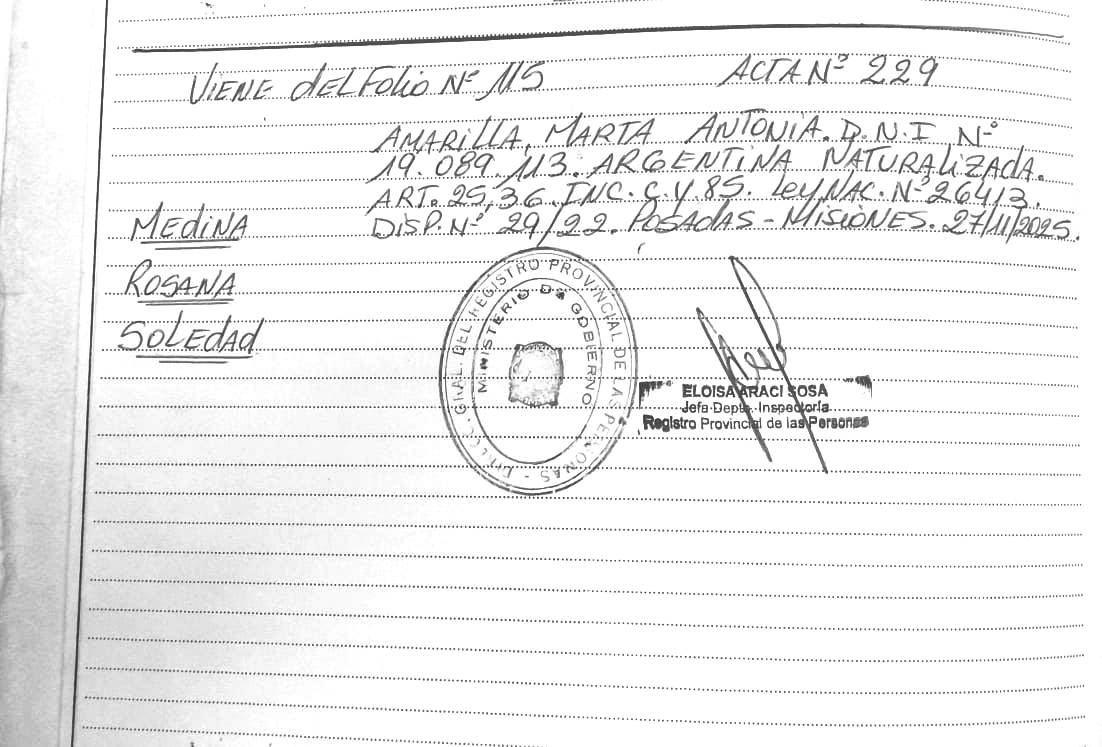 VIENE dEL FOLIO Nº 115 ACTA Nº 229
AMARILLA, MARTA ANTONIA. D.N.I Nº
19.089.113. ARGENTINA NATURALIZADA.
ART. 25, 36. INC. C. Y. 85. Ley NAC. Nº 26413.
DISP. Nº 29/22. POSADAS - MISIONES. 27/11/2025.
MEDINA
ROSANA
SOLEDAD
DIREC. GRAL. DEL REGISTRO PROVINCIAL DE LAS PERSONAS -
MINISTERIO DE GOBIERNO
ELOISA ARACI SOSA
Jefa Depto. Inspectoría
Registro Provincial de las Personas